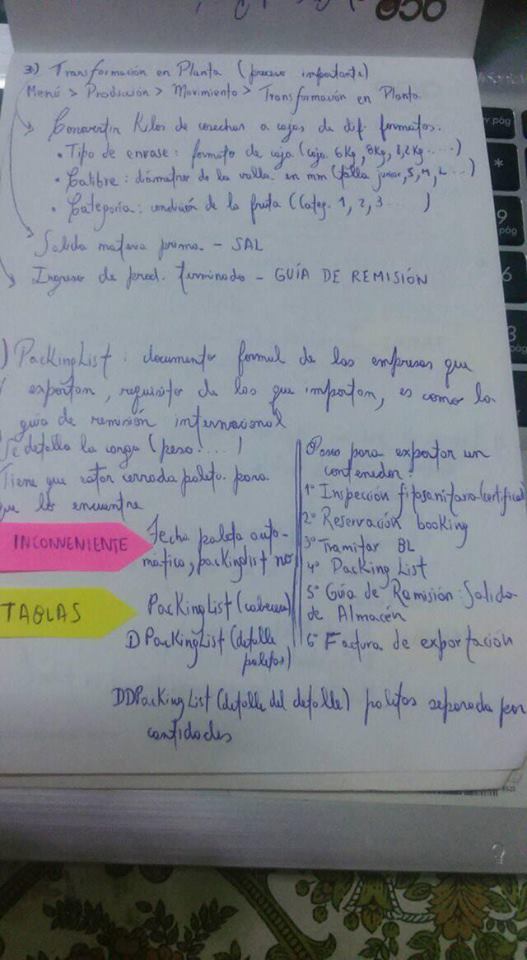 3) Transformación en Planta (proceso importante)
Menú > Producción > Movimiento > Transformación en Planta
Convertir Kilos de cosechas a cajas de dif. formatos.
• Tipo de envase: formato de caja (caja 6Kg, 8Kg, 8,2Kg ....)
• Calibre: diámetro de la malla en mm (talla junior, S, M, L ...)
• Categoría: condición de la fruta (Categ. 1, 2, 3 ... )
Salida materia prima. - SAL
Ingreso de prod. terminado - GUÍA DE REMISIÓN
) PackingList: documento formal de las empresas que
exportan, requisito de los que importan, es como la
guía de remisión internacional
Se detalla la carga (peso ....)
Tiene que estar cerrada paleta para
que lo encuentre
INCONVENIENTE
Fecha paleta auto-
mática, packinglist no
TABLAS
PackingList (cabecera)
DPackingList (detalle
paletas)
DDPackingList (detalle del detalle) paletas separada por
cantidades
Pasos para exportar un
contenedor:
1º Inspección fitosanitaria (certifica)
2º Reservación booking
3º Tramitar BL
4º Packing List
5º Guía de Remisión: Salida
de Almacén
6º Factura de exportación
pág
*
9
pág
6